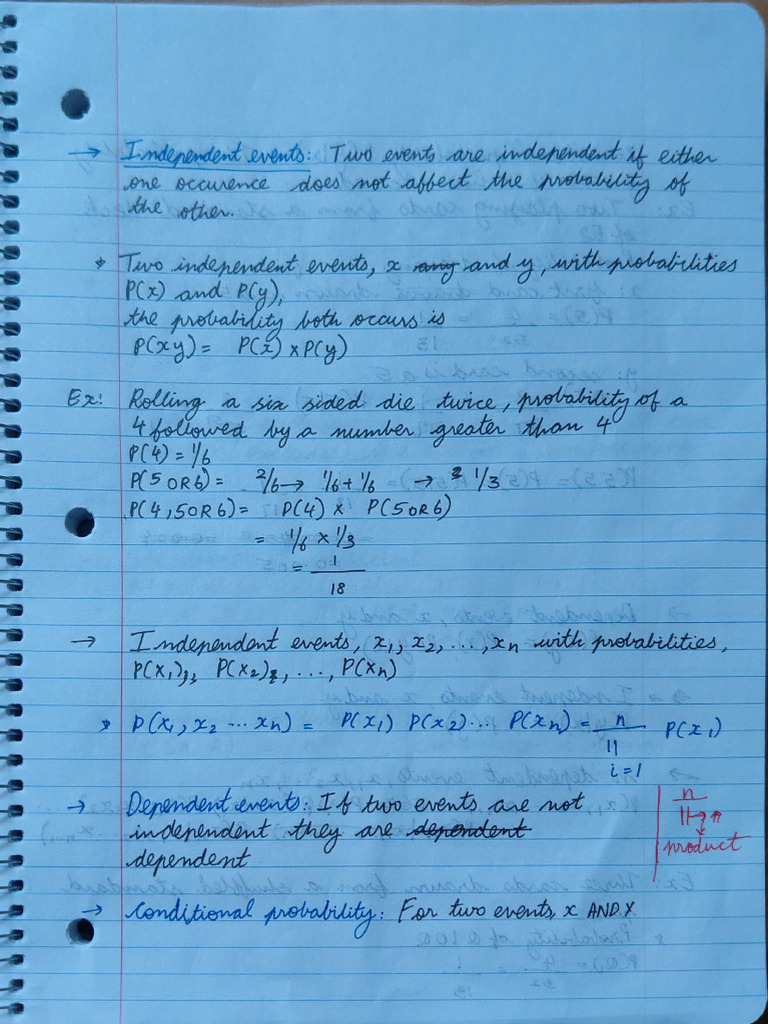 → Independent events: Two events are independent if either
one occurence does not affect the probability of
the other.
* Two independent events, x any and y, with probabilities
P(x) and P(y),
the probability both occurs is
P(xy) = P(x) x P(y)
Ex: Rolling a six sided die twice, probability of a
4 followed by a number greater than 4
P(4) = 1/6
P(5 OR 6) = 2/6 → 1/6 + 1/6 → 1/3
P(4, 5 OR 6) = P(4) x P(5 OR 6)
= 1/6 x 1/3
= 1/18
→ Independent events, x1, x2, ..., xn with probabilities,
P(x1), P(x2), ..., P(xn)
* P(x1, x2 ... xn) = P(x1) P(x2) ... P(xn) = n∏i=1 P(x1)
→ Dependent events: If two events are not
independent they are dependent
dependent
n
∏ → π
product
→ Conditional probability: For two events, x AND Y